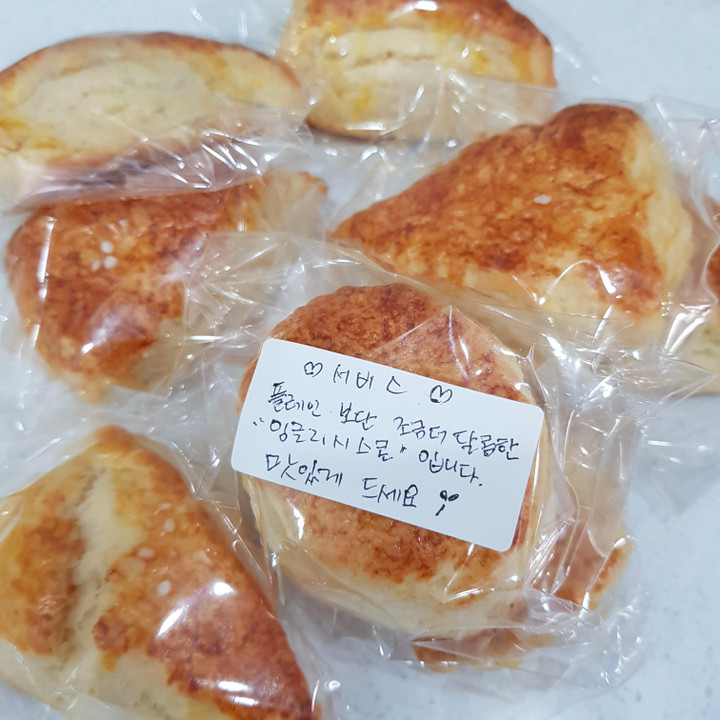 ♡ 서비스 ♡
플레인 보단 조금더 달콤한
"잉글리시스콘" 입니다.
맛있게 드세요